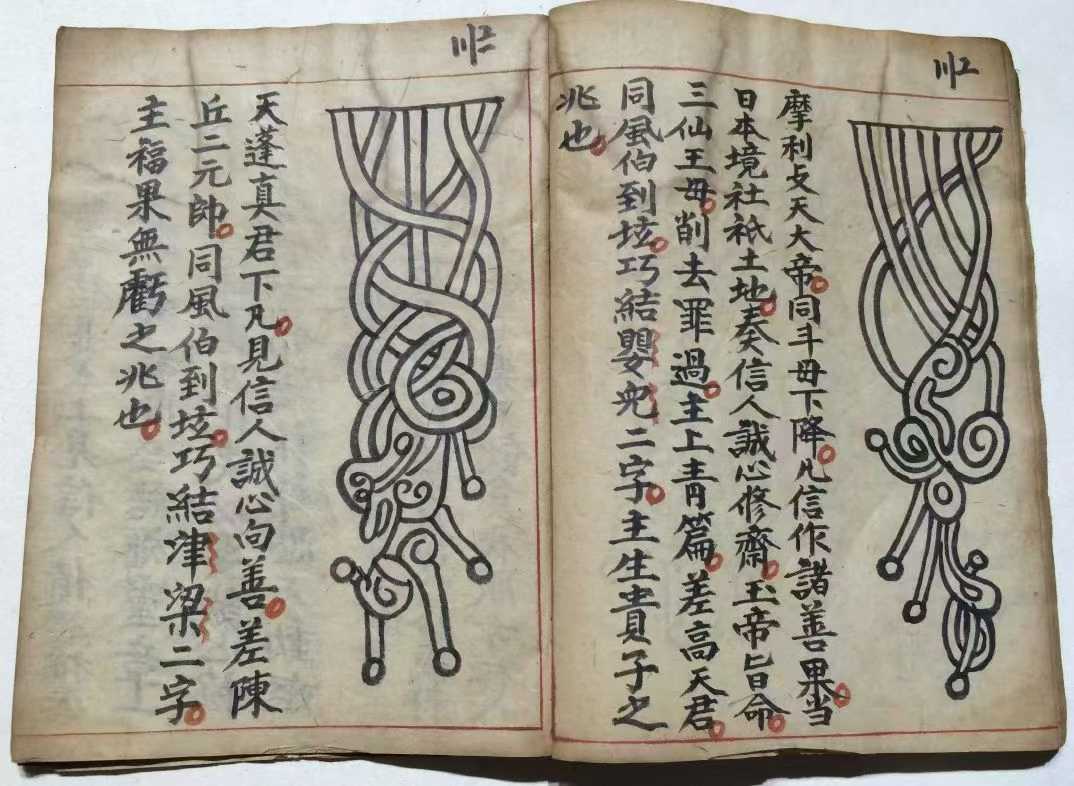 摩利攴天大帝同斗母下降凡信作諸善果当
日本境社祇土地奏信人誠心修齋玉帝旨命
三仙王母削去罪過主上青篇差高天君
同風伯到坛巧結嬰兒二字主生貴子之
兆也
天蓬真君下凡見信人誠心向善差陳
丘二元帥同風伯到坛巧結津梁二字
主福果無虧之兆也